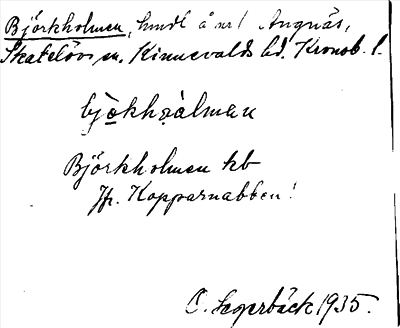 Björkholmen, hmdl å nr 1 Ängnäs,
Skatelövs sn. Kinnevalds hd. Kronob. l.
Björkholmen kb
Jfr. Kopparnabben!
O. Segerbäck 1935.